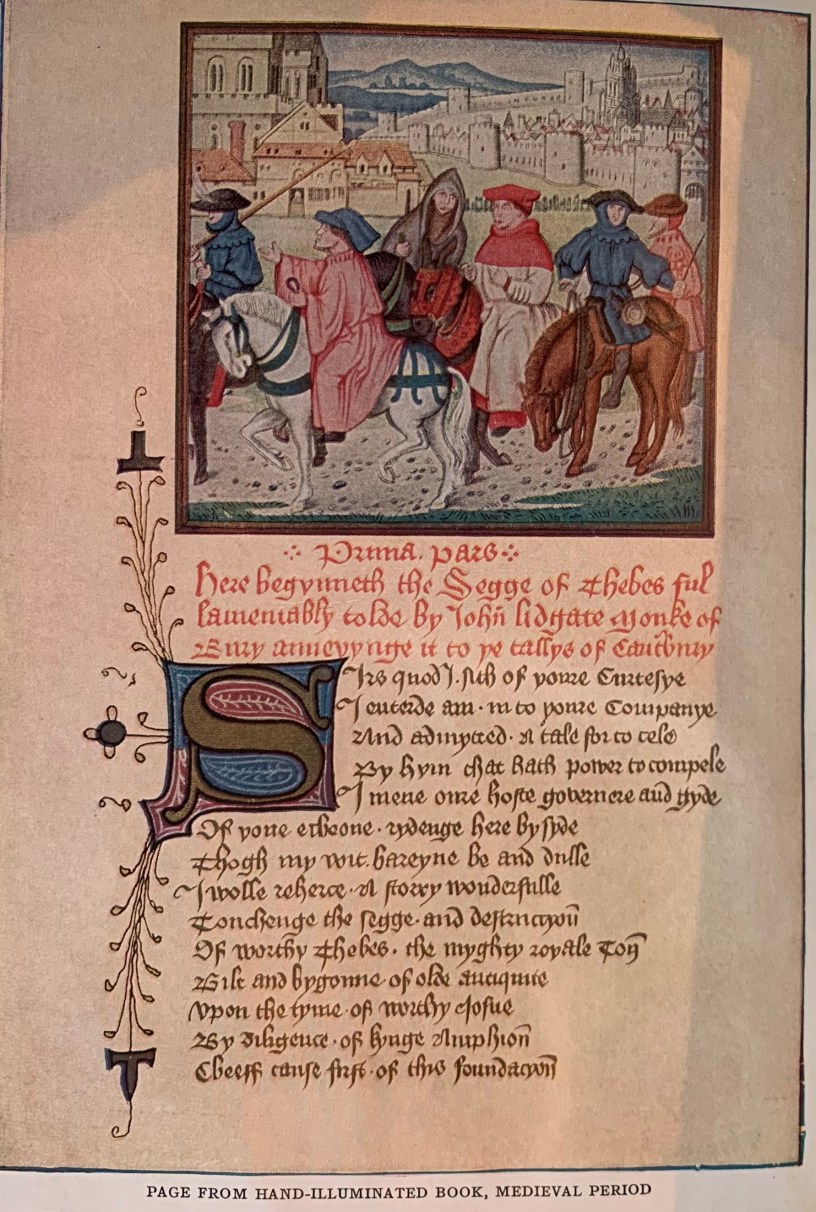 Prima. pars
here begynneth the Segge of Thebes ful
lamentably tolde by Johñ lidgate Monke of
Bury annexynge it to ye tallys of Cantbury
Sirs quod I. sith of youre Curtesye
I entrede am. in to youre Companye
And admytted. A tale for to tele
By hym that hath power to compele
I mene oure hoste governere and gyde
Of yone echeone. rydenge here by syde
Thogh my wit. bareyne be and dulle
I wolle reherce. A story wonderfulle
Touchenge the segge. and destruccyoñ
Of worthy Thebes. the myghty royale Toñ
Bilt and bygonne. of olde antiquite
Vpon the tyme. of worthy Josue
By diligence. of kynge Amphioñ
Cheeff cause first. of this foundacyoñ
PAGE FROM HAND-ILLUMINATED BOOK, MEDIEVAL PERIOD